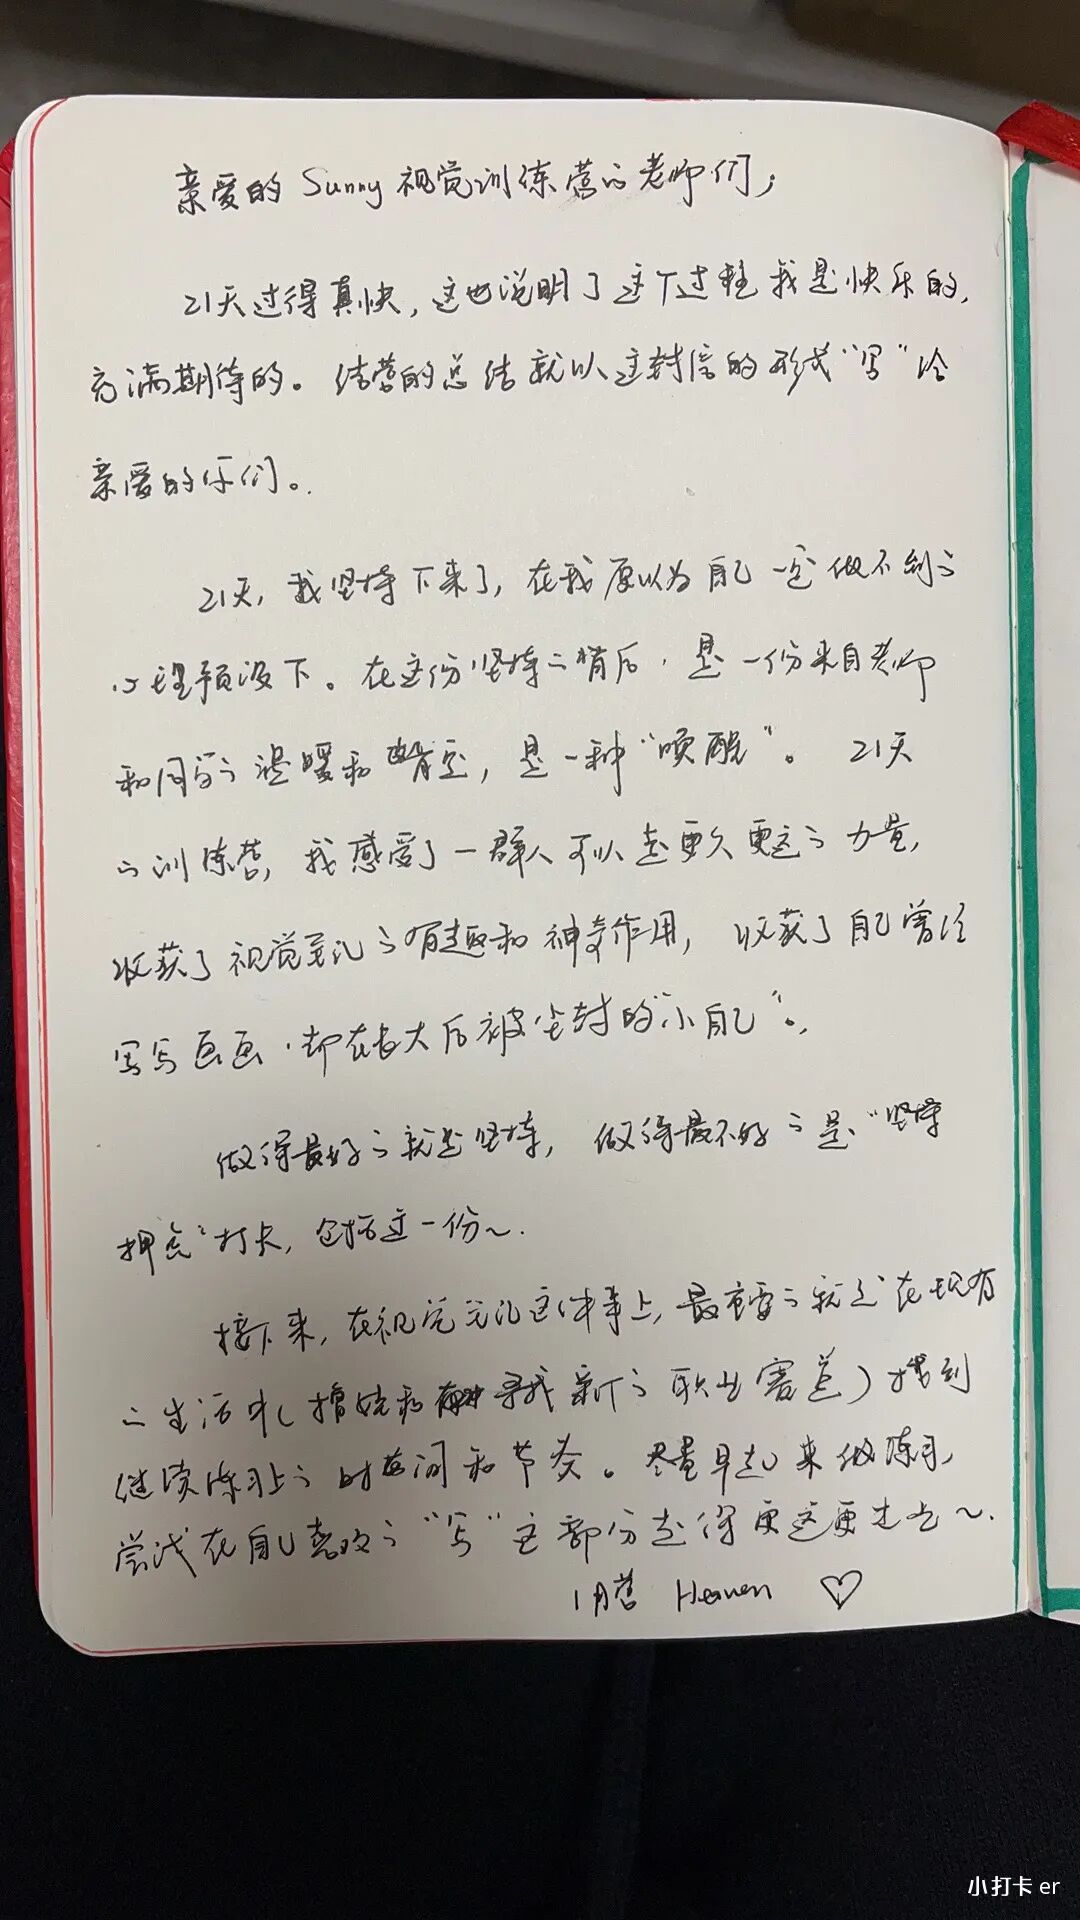 亲爱的 Sunny 视觉训练营的老师们；
21天过得真快，这也说明了这个过程我是快乐的，
充满期待的。结营的总结就以这封信的形式“写”给
亲爱的你们。
21天，我坚持下来了，在我原以为自己一定做不到的
心理预设下。在这份坚持的背后，是一份来自老师
和同学的温暖和肯定，是一种“唤醒”。21天
的训练营，我感受了一群人可以走更久更远的力量，
收获了视觉笔记的有趣和神奇作用，收获了自己曾经
写写画画，却在长大后被尘封的“小自己”。
做得最好的就是坚持，做得最不好的是“坚持
押后”打卡，包括这一份~.
接下来，在视觉笔记这件事上，最重要的就是在现有
的生活中（撸娃和寻找新的职业赛道）找到
继续练习的时间和节奏。尽量早起来做练习，
尝试在自己喜欢的“写”这部分走得更远更扎实~.
1月营 Heaven ♡
小打卡 er